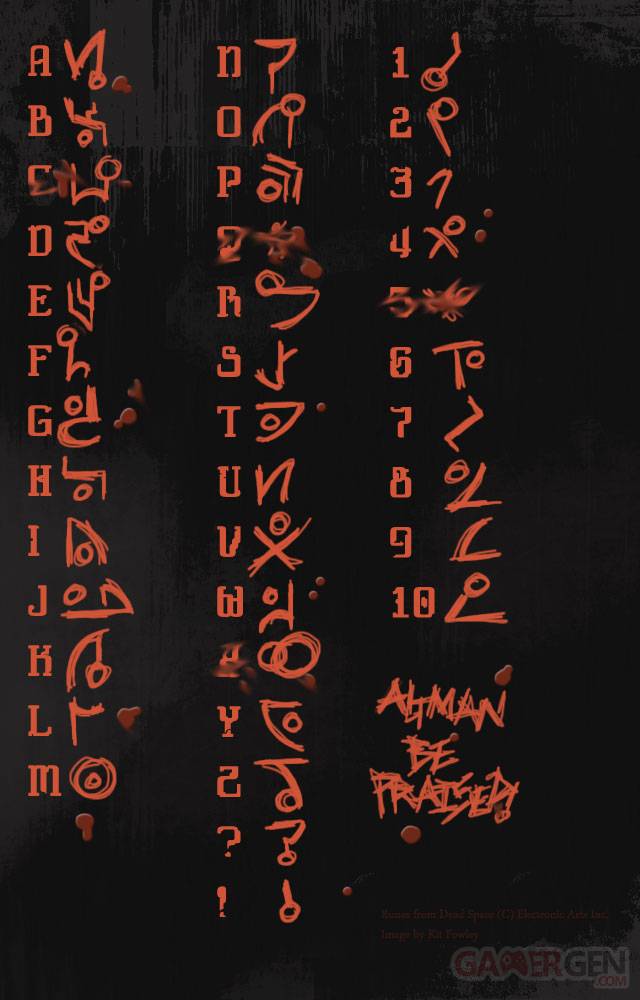 A
B
C
D
E
F
G
H
I
J
K
L
M
N
O
P
R
S
T
U
V
W
Y
Z
?
!
1
2
3
4
5
6
7
8
9
10
ALTMAN
BE
PRAISED!
Runes from Dead Space (C) Electronic Arts Inc.
Image by Kit Fowley
GAMERGEN
.COM